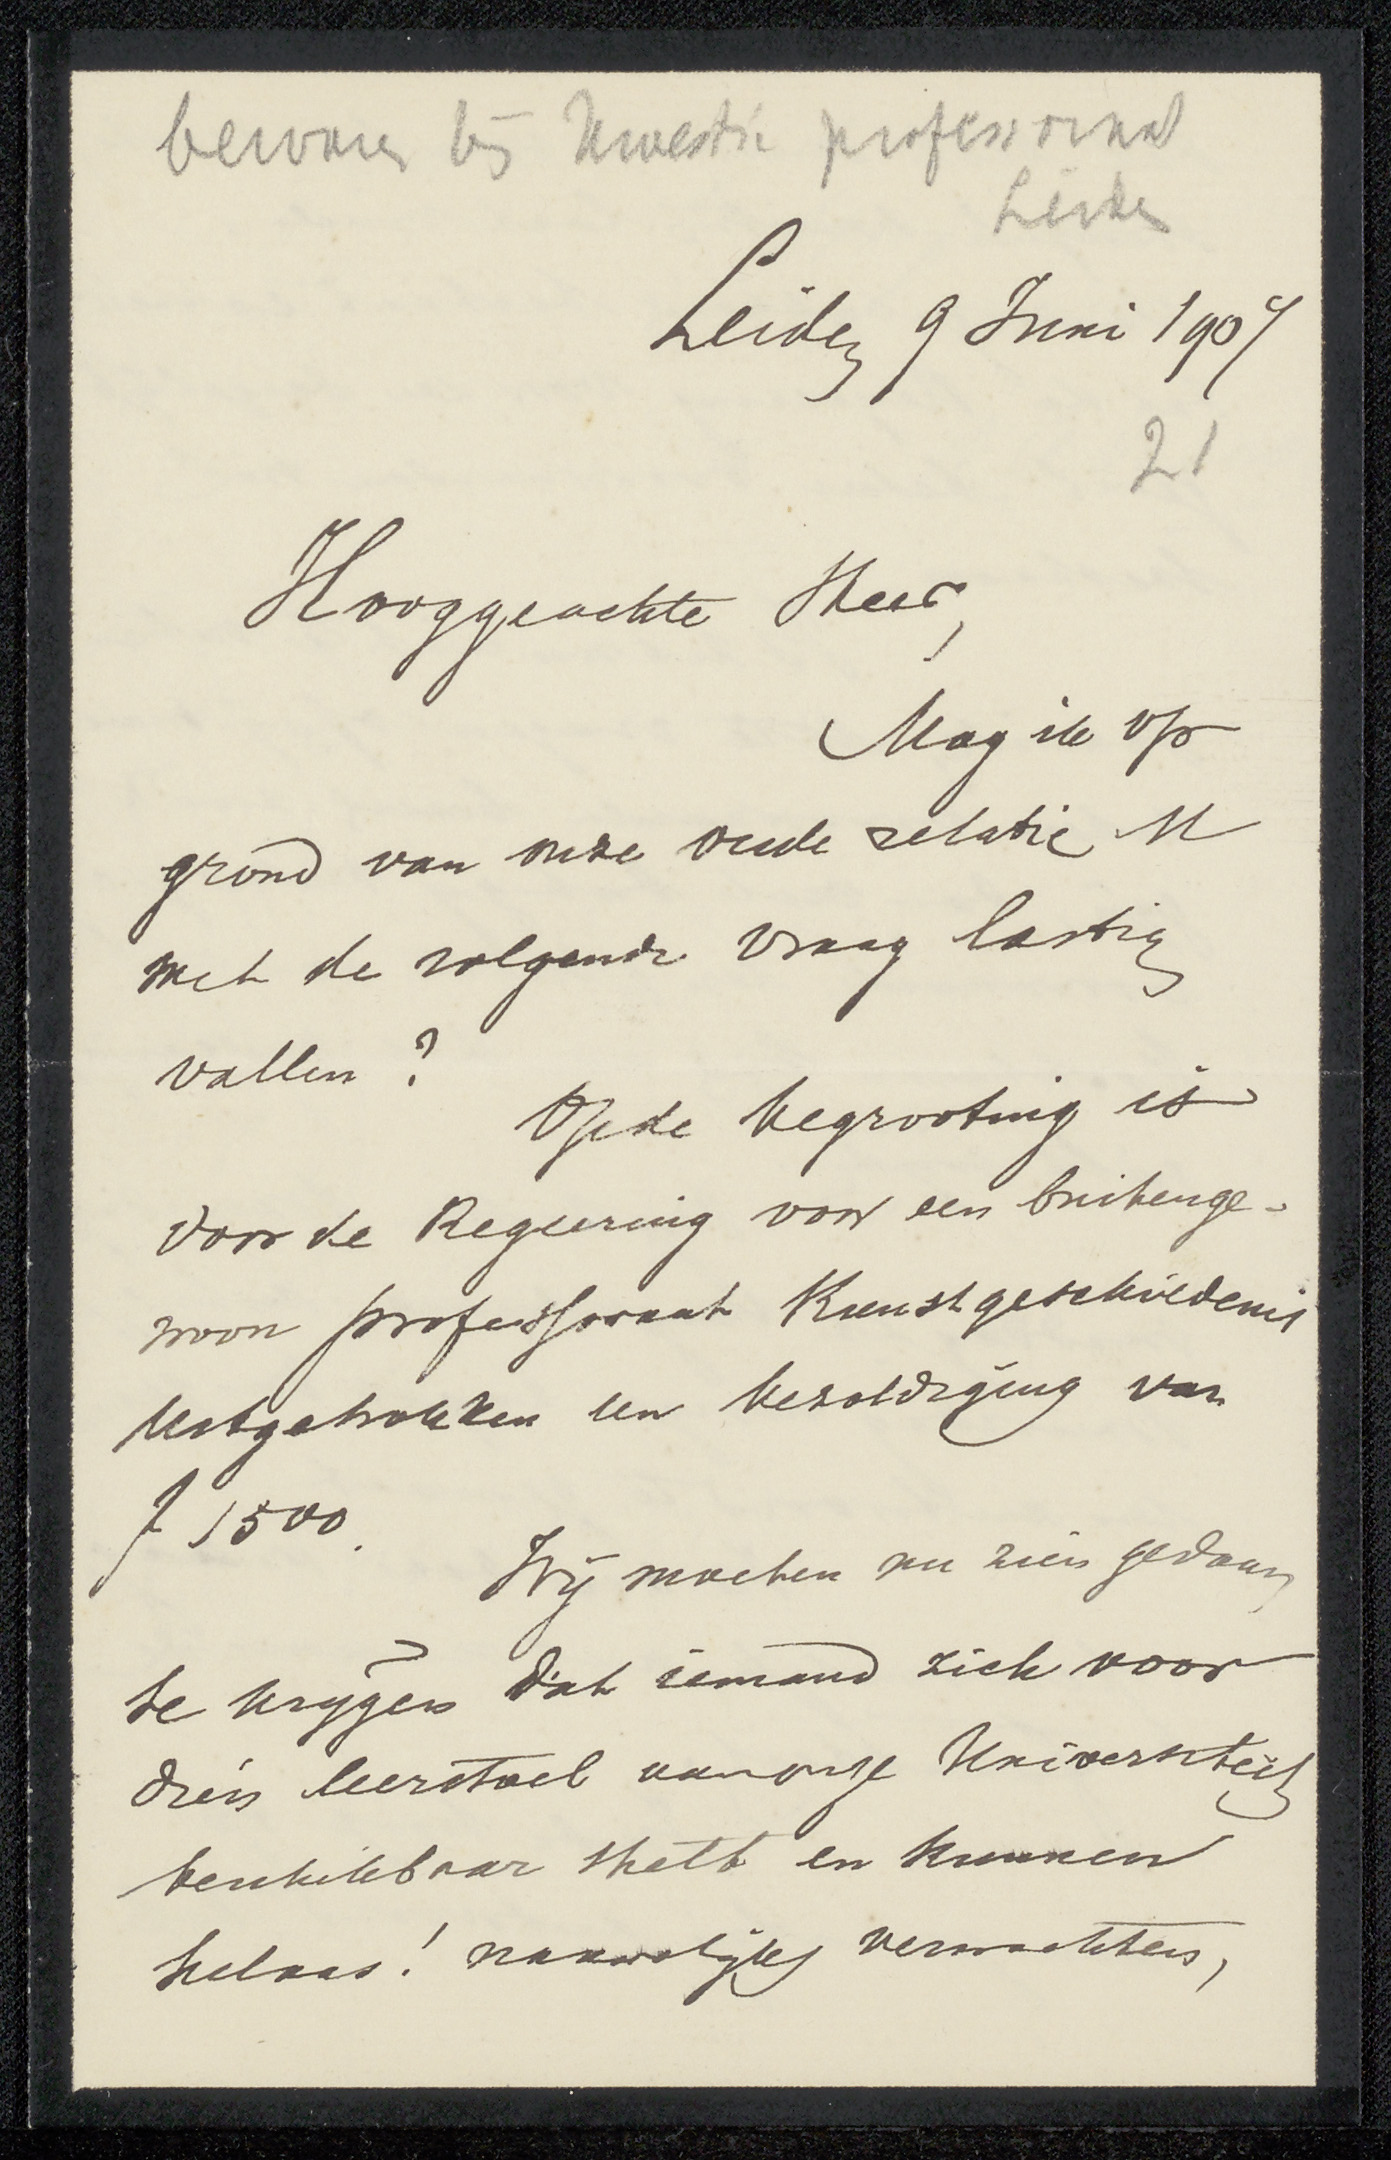 bewaren bij kwestie professoraat
Leiden
Leiden 9 Juni 1907
21
Hooggeachte Heer,
Mag ik op
grond van onze oude relatie U
met de volgende vraag lastig
vallen?
Op de begrooting is
door de Regeering voor een buitenge-
woon professoraat Kunstgeschiedenis
uitgetrokken een bezoldiging van
f 1500.
Wij moeten nu zien gedaan
te krijgen dat iemand zich voor
dien leerstoel aan onze Universiteit
beschikbaar stelt en kunnen
helaas! nauwelijks verwachten,